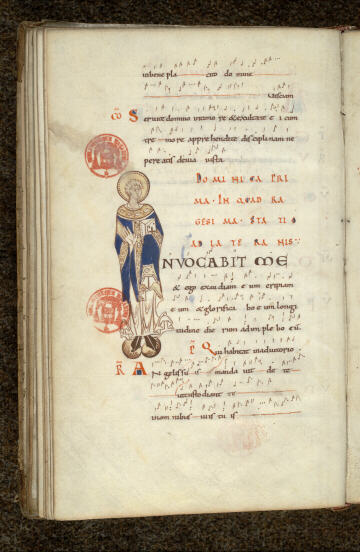 in bene pla cito do mine
CO Seruite domino intimo re & exultate e i cum
tre mo re apprehendite disciplinam ne
pere atis deuia iusta
DO MI NI CA PRI
MA · IN QUAD RA
GESI MA · STA TI O
AD LA TE RA NIS
NVOCABIT ME
& ego exaudiam e um eripiam
e um & glorifica bo e um longi
tudine die rum adimple bo eū
P Qui habitat in adiutorio
R A
Angelis su is manda uit de te
ut custo diant te
in om nibus uiis tu is